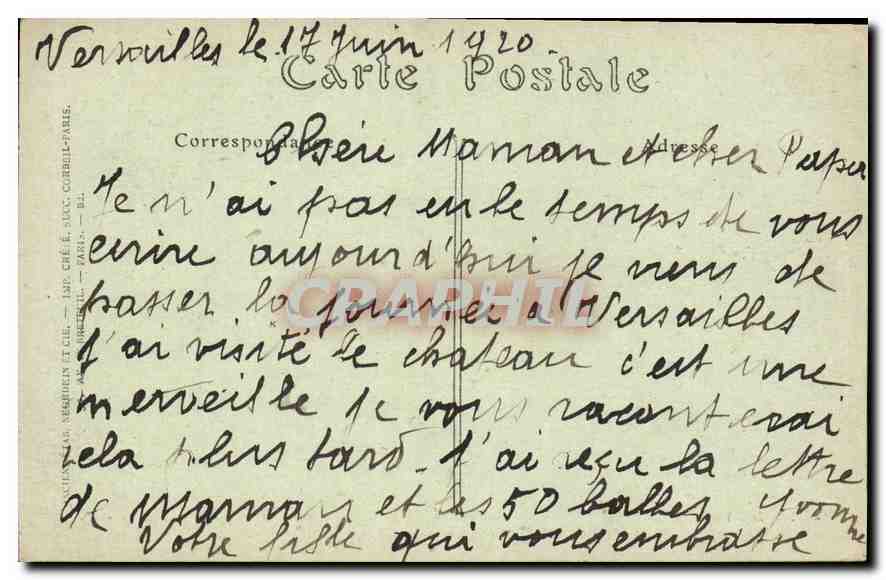 Versailles le 17 Juin 1920.
Carte Postale
Correspondance Adresse
Chère Maman et cher Papa
Je n'ai pas eu le temps de vous
ecrire aujourd'hui je viens de
passer la journée a Versailles
j'ai visité le chateau c'est une
merveille je vous raconterai
cela plus tard. J'ai reçu la lettre
de Maman et les 50 balles. Yvonne
Votre fille qui vous embrasse
CRAPHIL
ANCIENS ETAB. NEURDEIN ET CIE. — IMP. CRÉTÉ, SUCC. CORBEIL-PARIS.
BRETEUIL. — PARIS. — BJ.